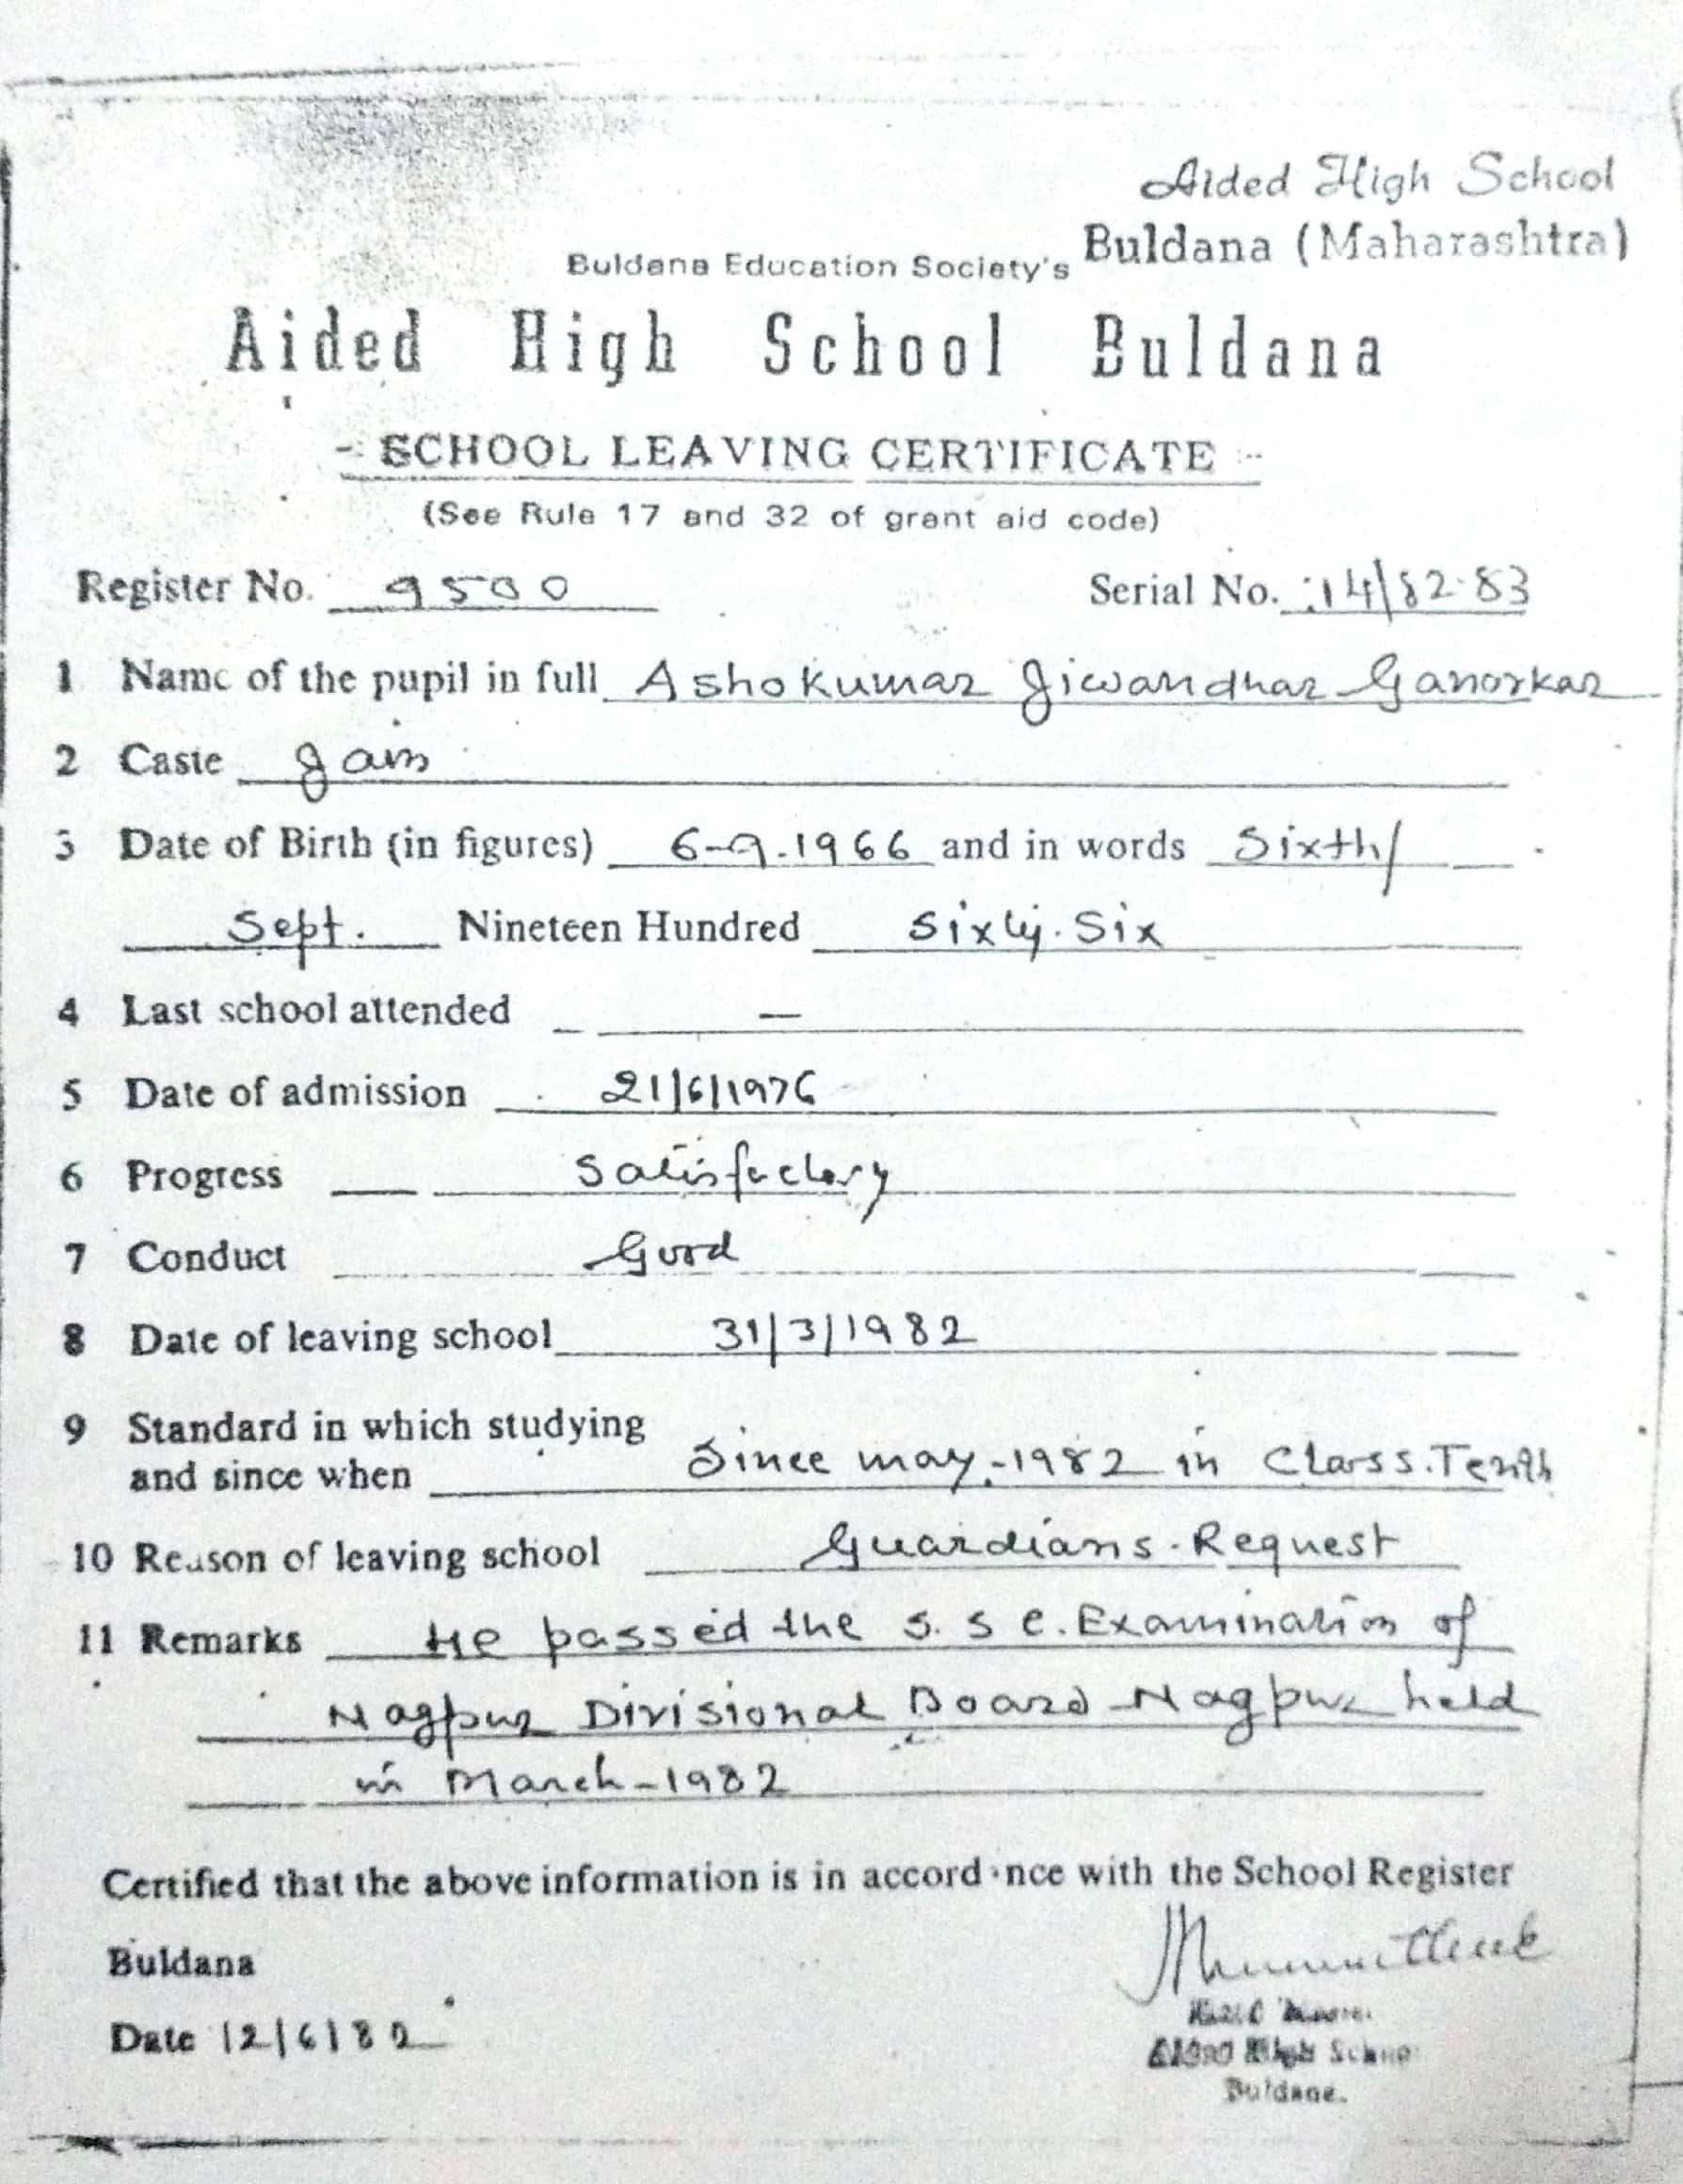 Aided High School
Buldana (Maharashtra)
Buldana Education Society's
Aided High School Buldana
-: SCHOOL LEAVING CERTIFICATE :-
(See Rule 17 and 32 of grant aid code)
Register No. 9500 Serial No. :14/82-83
1 Name of the pupil in full Ashokumar Jiwandhar Ganorkar
2 Caste Jain
3 Date of Birth (in figures) 6-9-1966 and in words Sixth/
Sept. Nineteen Hundred Sixty-Six
4 Last school attended —
5 Date of admission 21/6/1976
6 Progress Satisfactory
7 Conduct Good
8 Date of leaving school 31/3/1982
9 Standard in which studying
and since when Since may-1982 in Class.Tenth
10 Reason of leaving school Guardians-Request
11 Remarks He passed the S. S C. Examination of
Nagpur Divisional Board Nagpur held
in March-1982
Certified that the above information is in accordance with the School Register
Buldana
Date 12/6/82
High School
Buldana.